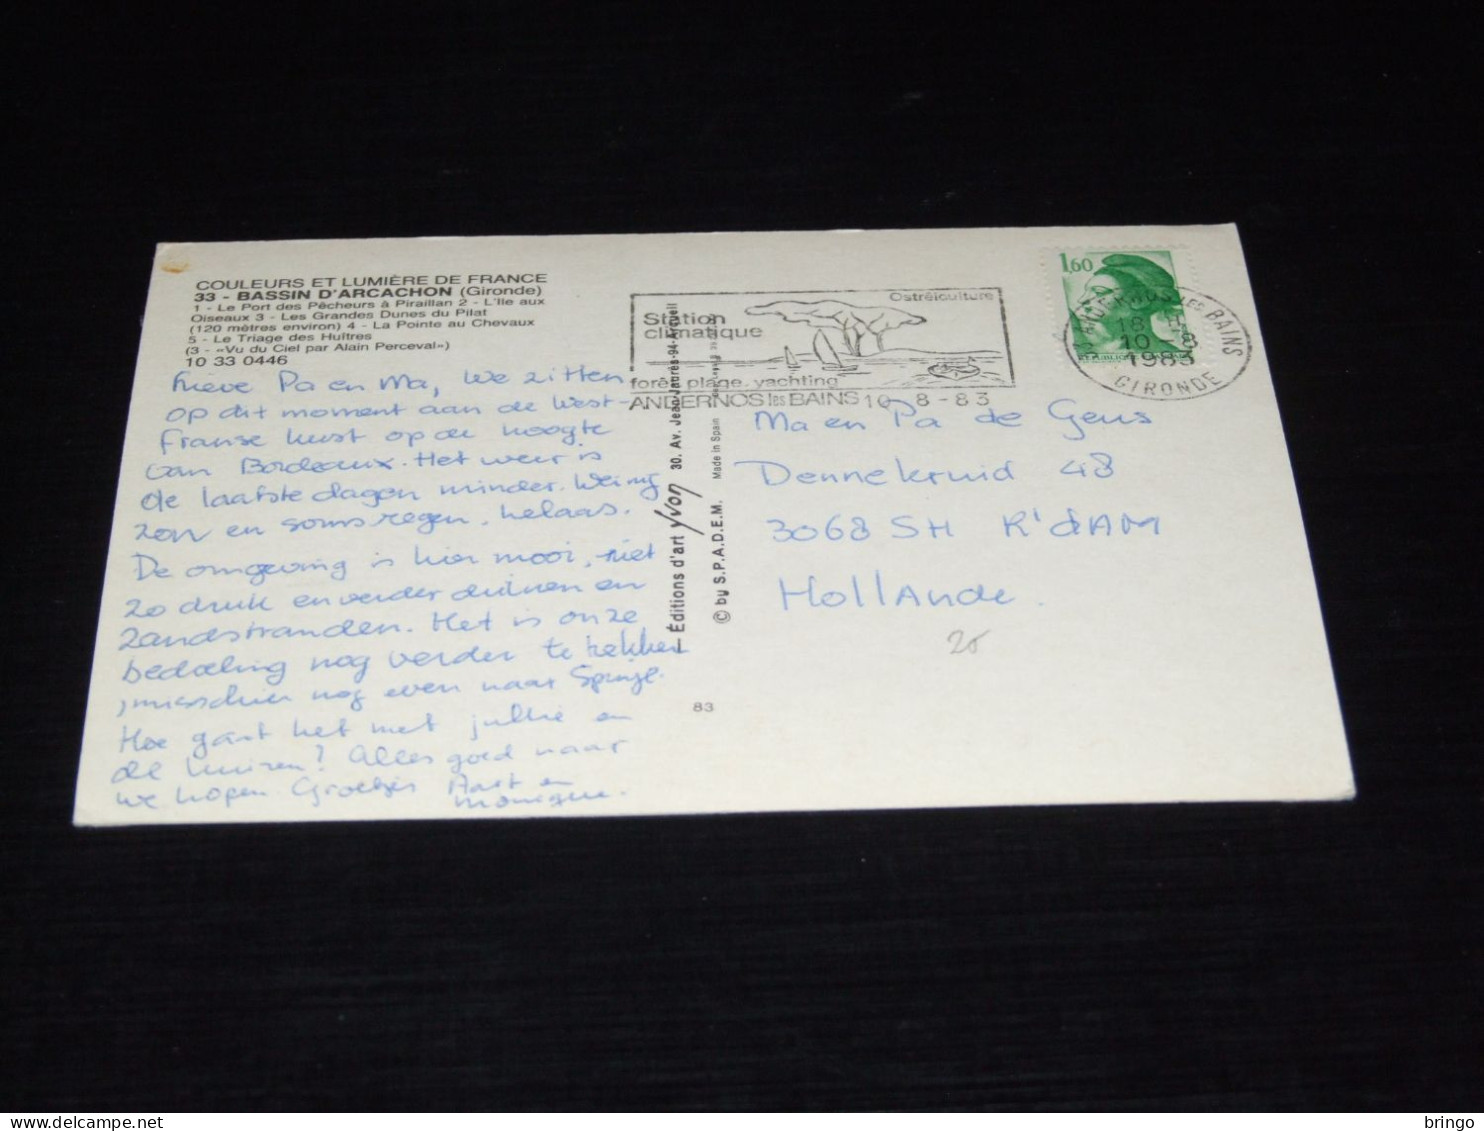 COULEURS ET LUMIÈRE DE FRANCE
33 - BASSIN D'ARCACHON (Gironde)
1 - Le Port des Pêcheurs à Piraillan 2 - L'Ile aux
Oiseaux 3 - Les Grandes Dunes du Pilat
(120 mètres environ) 4 - La Pointe au Chevaux
5 - Le Triage des Huîtres
(3 - «Vu du Ciel par Alain Perceval»)
10 33 0446
Lieve Pa en Ma, We zitten
op dit moment aan de West-
Franse kust op de hoogte
van Bordeaux. Het weer is
de laatste dagen minder. Weinig
zon en soms regen, helaas.
De omgeving is hier mooi, niet
zo druk en verder duinen en
zandstranden. Het is onze
bedoeling nog verder te trekken
, misschien nog even naar Spanje.
Hoe gaat het met jullie en
de huizen? Alles goed naar
we hopen. Groetjes Aart en
Monique.
Éditions d'art Yvon 30. Av. Jean-Jaurès-94-Arcueil
© by S.P.A.D.E.M. Made in Spain
83
Station
climatique
Ostréiculture
forêt, plage, yachting
ANDERNOS les BAINS 10-8-83
1,60
ANDERNOS LES BAINS
18 H
10-8
1983
GIRONDE
Ma en Pa de Geus
Dennekruid 48
3068 SH R'dAM
HollAnde.
20
bringo